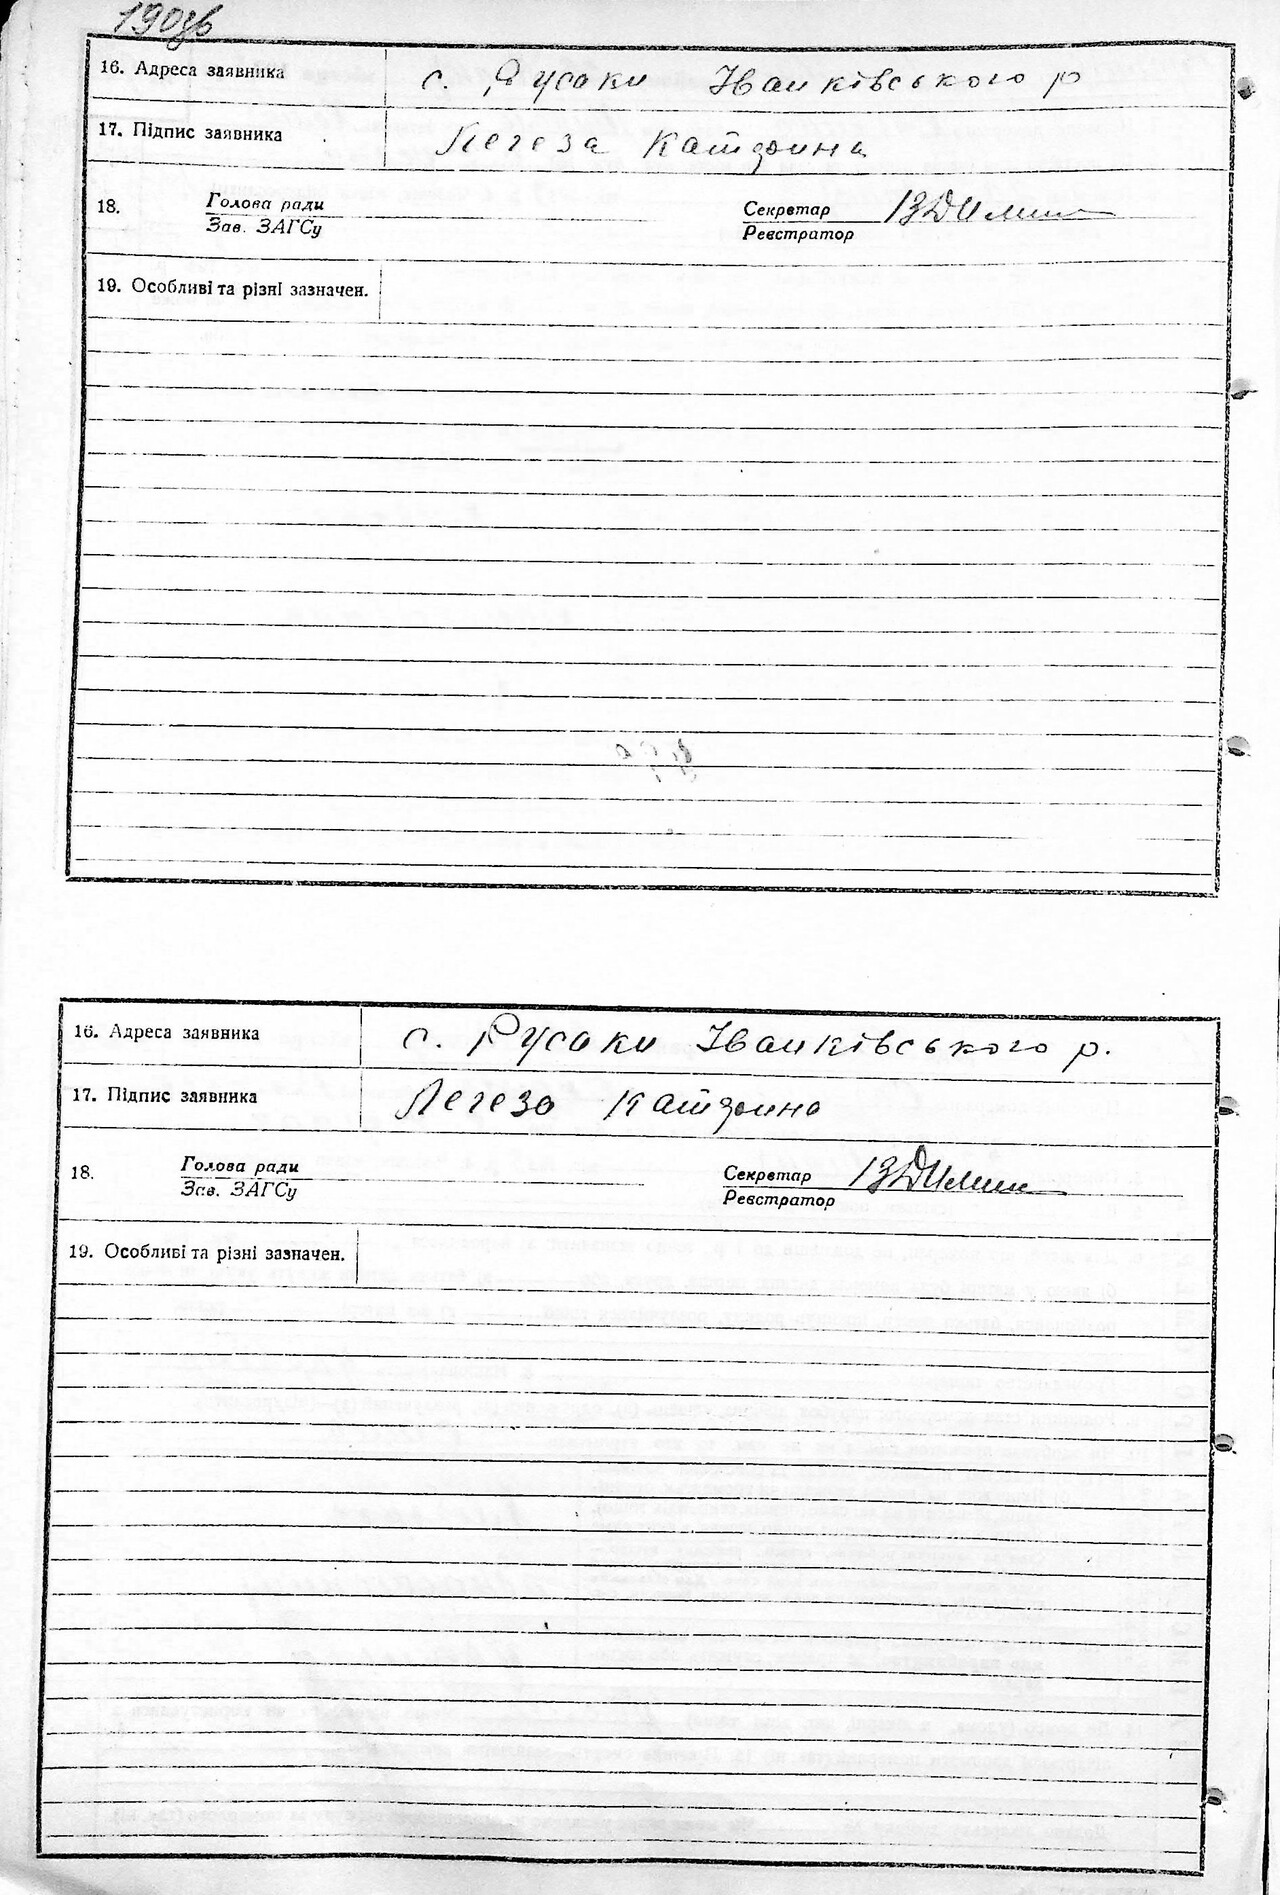 190зв
16. Адреса заявника с. Русаки Іванківського р
17. Підпис заявника Легеза Катерина
18. Голова ради Секретар
Зав. ЗАГСу Реєстратор
19. Особливі та різні зазначен.
16. Адреса заявника с. Русаки Іванківського р.
17. Підпис заявника Легеза Катерина
18. Голова ради Секретар
Зав. ЗАГСу Реєстратор
19. Особливі та різні зазначен.